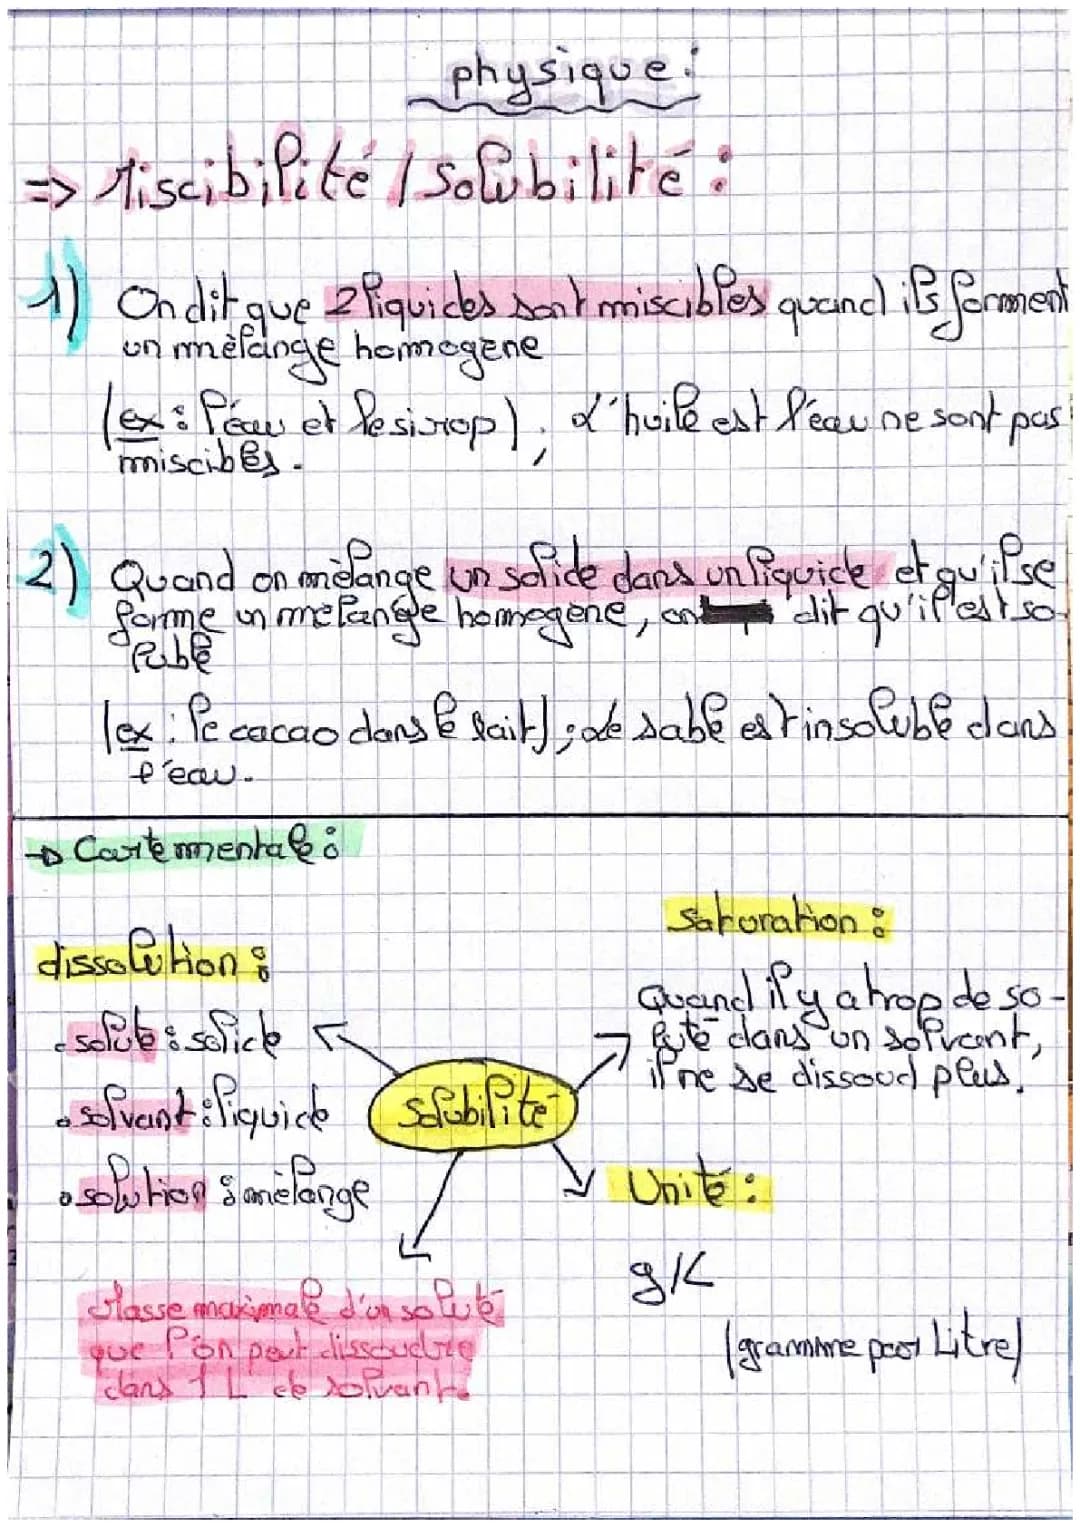 physique :
=> Miscibilité / Solubilité :
1) On dit que 2 liquides sont miscibles quand ils forment
un mélange homogène
(ex : l'eau et le sirop) ; L'huile est l'eau ne sont pas
miscibles.
2) Quand on mélange un solide dans un liquide et qu'il se
forme un mélange homogène, on dit qu'il est so-
luble
(ex : le cacao dans le lait) ; Le sable est insoluble dans
l'eau.
→ Carte mentale :
dissolution :
• soluté : solide
• solvant : liquide
• solution : mélange
Solubilité
saturation :
Quand il y a trop de so-
luté dans un solvant,
il ne se dissoud plus.
Unité :
g/L
(gramme par Litre)
Masse maximale d'un soluté
que l'on peut dissoudre
dans 1 L de solvant.